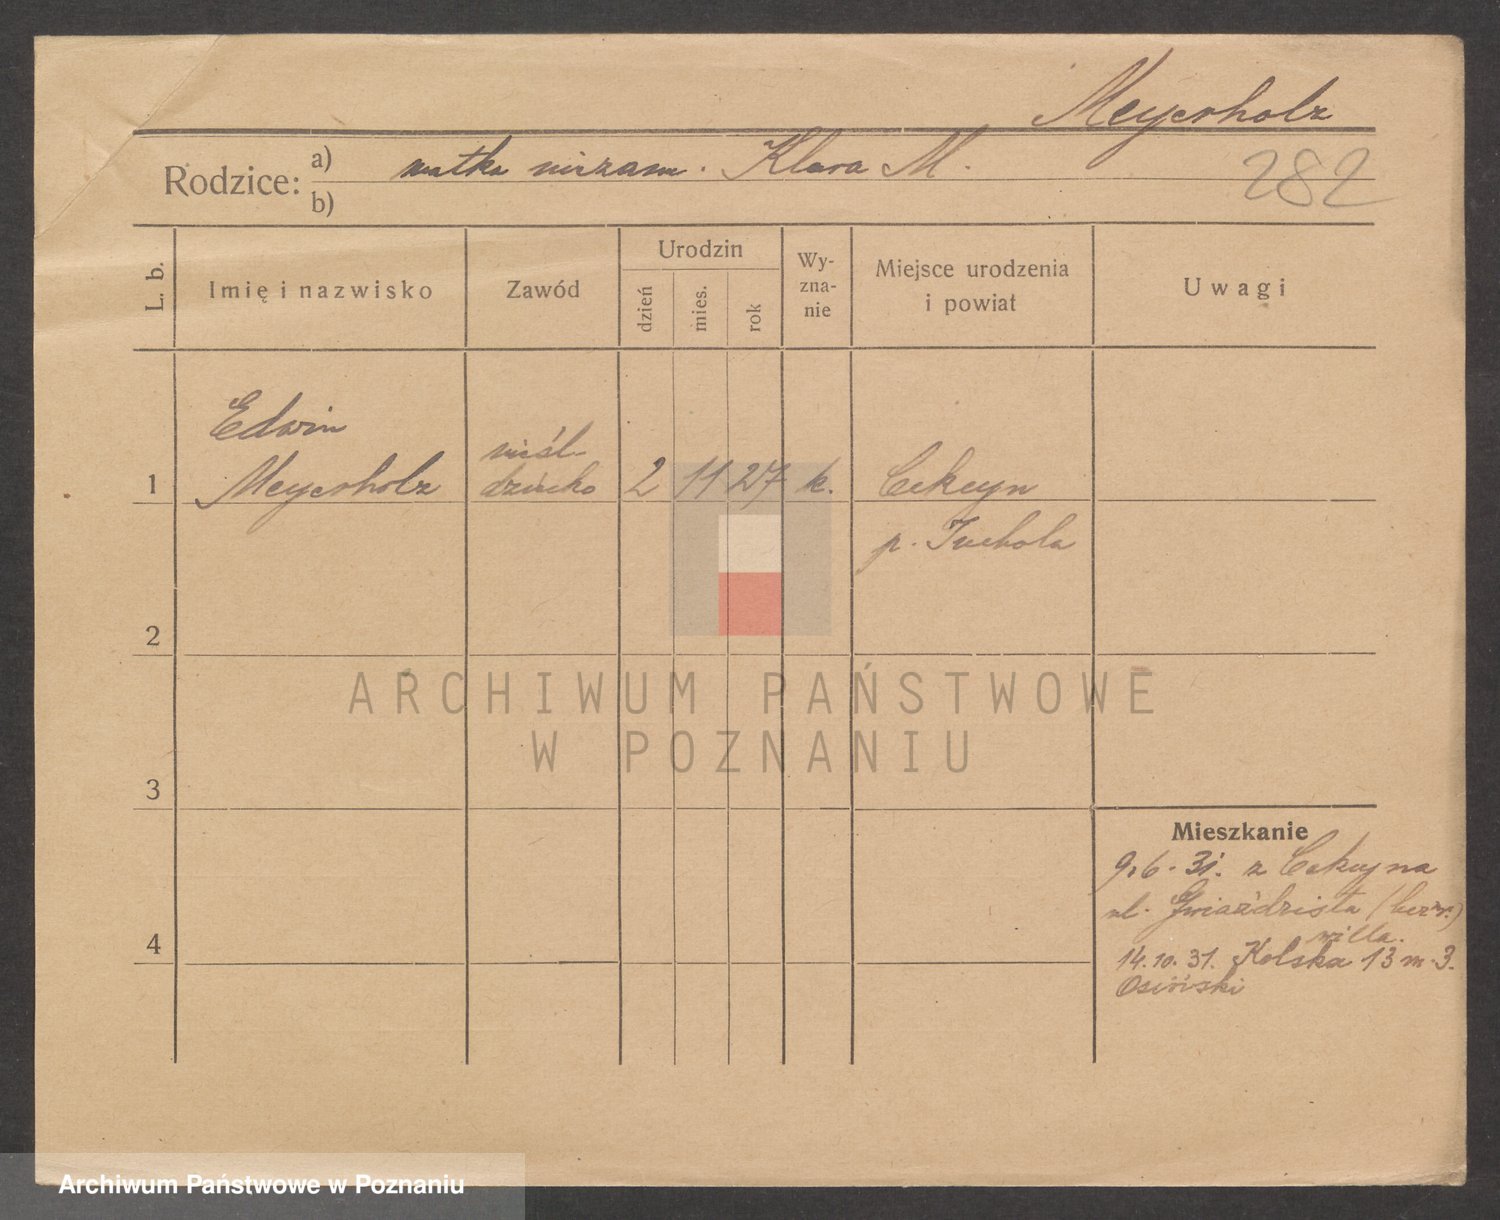 Meyerholz
282
Rodzice: a) matka niezam. Klara M.
b)
L. b.
Imię i nazwisko
Zawód
Urodzin
dzień
mies.
rok
Wy-
zna-
nie
Miejsce urodzenia
i powiat
Uwagi
Edwin
1 Meyerholz
nieśl.
dziecko
2 11 27 k. Cekcyn
p. Tuchola
2
3
4
Mieszkanie
9.6.31. z Cekcyna
ul. Gwiaździsta (bez nr.)
willa.
14.10.31. Kolska 13 m. 3.
ARCHIWUM PAŃSTWOWE
W POZNANIU
Archiwum Państwowe w Poznaniu